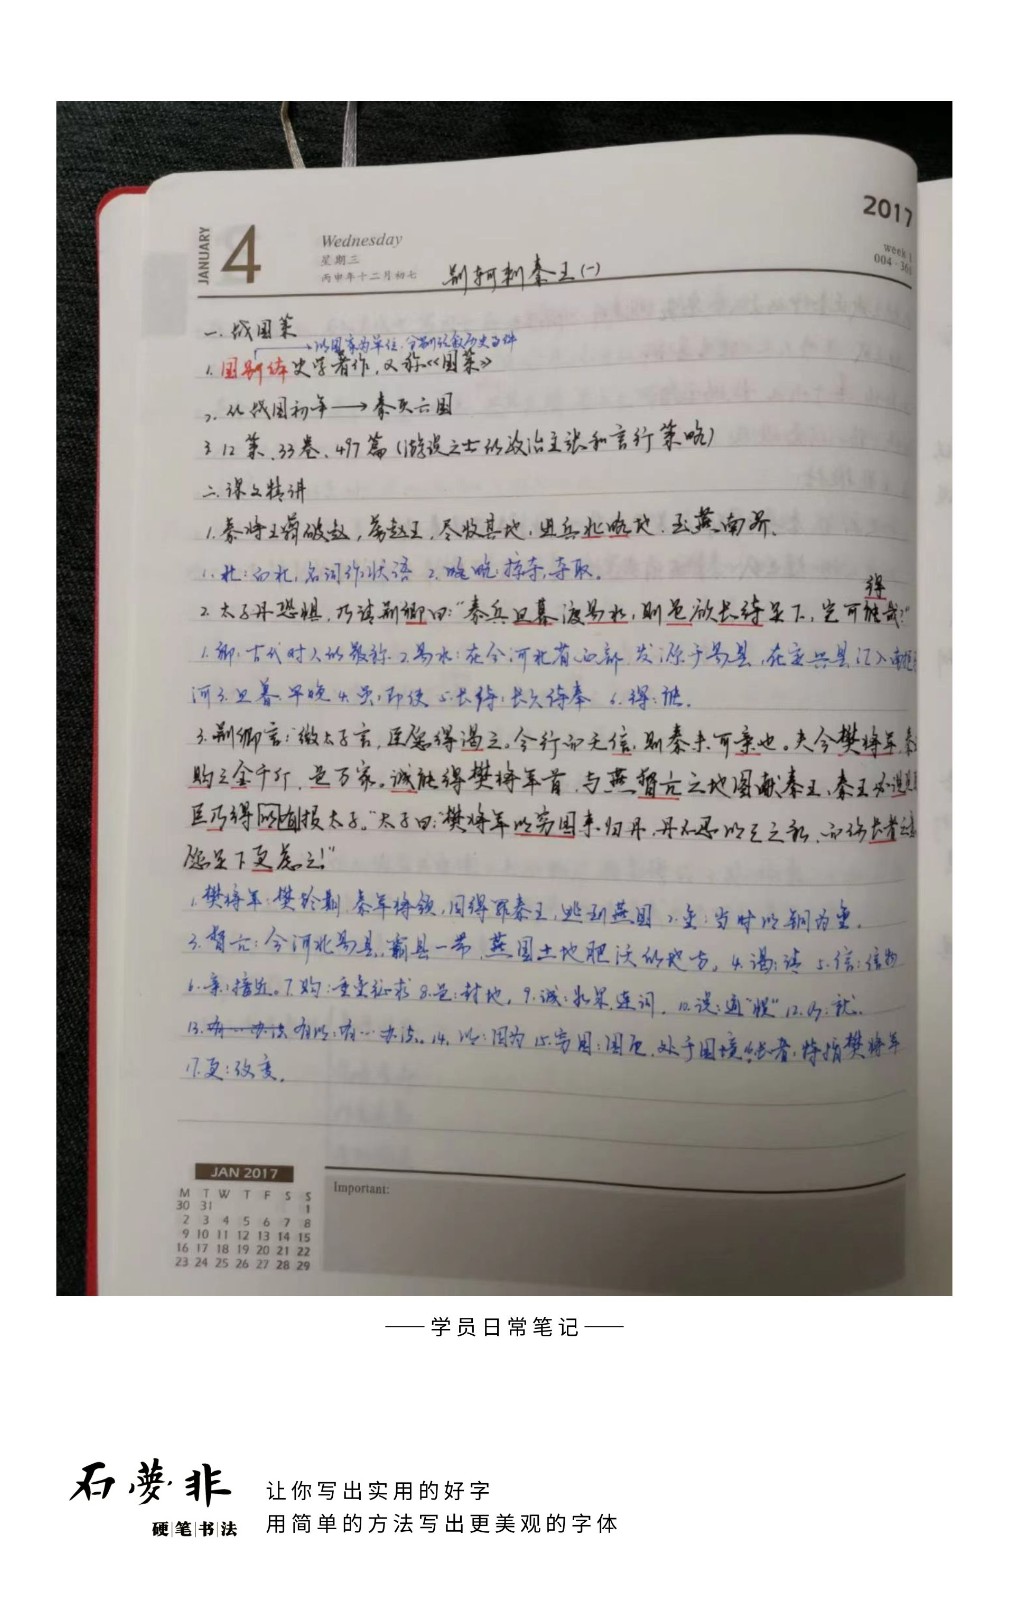 JANUARY
4
Wednesday
星期三
丙申年十二月初七
2017
week 1
荆轲刺秦王(一)
一.战国策
以国家为单位,分别记叙历史事件
1.国别体史学著作,又称《国策》
2.从战国初年→秦灭六国
3.12策、33卷、497篇(游说之士的政治主张和言行策略)
二.课文精讲
1.秦将王翦破赵,虏赵王,尽收其地,进兵北略地,至燕南界.
1.北:向北,名词作状语 2.略:掠夺,夺取.
得
2.太子丹恐惧,乃请荆卿曰:"秦兵旦暮渡易水,则虽欲长侍足下,岂可能哉?"
1.卿:古代对人的敬称 2.易水:在今河北省西部,发源于易县,在定兴县汇入南拒
河 3.旦暮:早晚 4.虽:即使 5.长侍:长久侍奉 6.得:能.
3.荆卿言:"微太子言,臣愿得谒之。今行而无信,则秦未可亲也。夫今樊将军,秦王
购之金千斤,邑万家。诚能得樊将军首,与燕督亢之地图献秦王,秦王必说见
臣乃得以有报太子。"太子曰:"樊将军以穷困来归丹,丹不忍以己之私,而伤长者之意
愿足下更虑之!"
1.樊将军:樊於期,秦军将领,因得罪秦王,逃到燕国 2.金:当时以铜为金.
3.督亢:今河北易县,霸县一带,燕国土地肥沃的地方. 4.谒:请 5.信:信物
6.亲:接近。7.购:重金征求 8.邑:封地. 9.诚:如果,连词. 10.说:通"悦" 12.乃:就.
13.有…办法 有以:有…办法。14.以:因为 15.穷困:困厄,处于困境 长者:特指樊将军
17.更:改变.
JAN 2017
M T W T F S S
30 31 1
2 3 4 5 6 7 8
9 10 11 12 13 14 15
16 17 18 19 20 21 22
23 24 25 26 27 28 29
Important:
学员日常笔记
石梦非
硬笔书法
让你写出实用的好字
用简单的方法写出更美观的字体